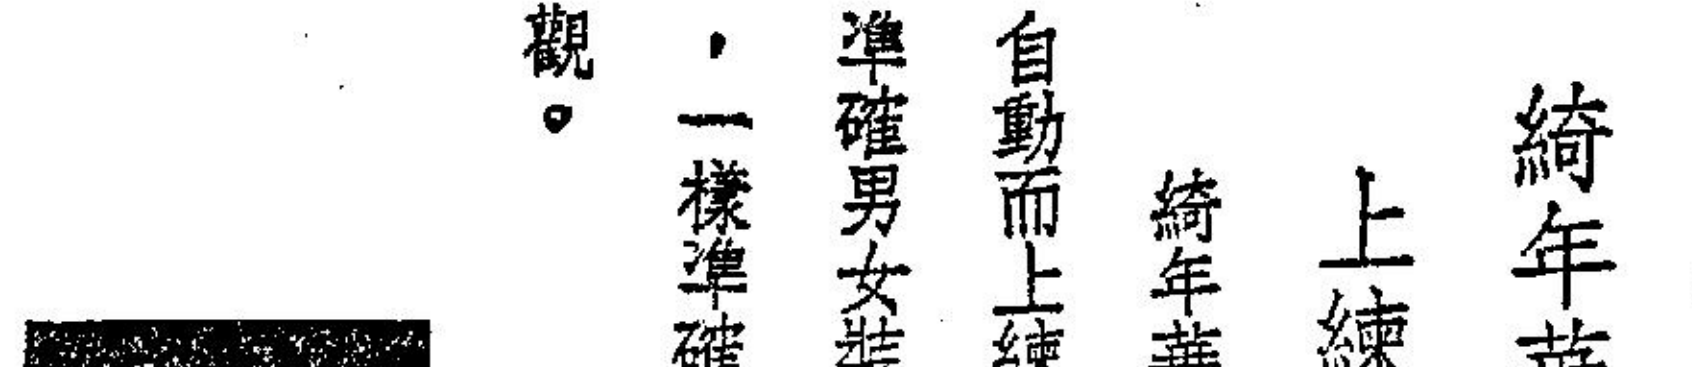 綺年華
上練
綺年華
自動而上練
準確男女裝
，一樣準確
觀。